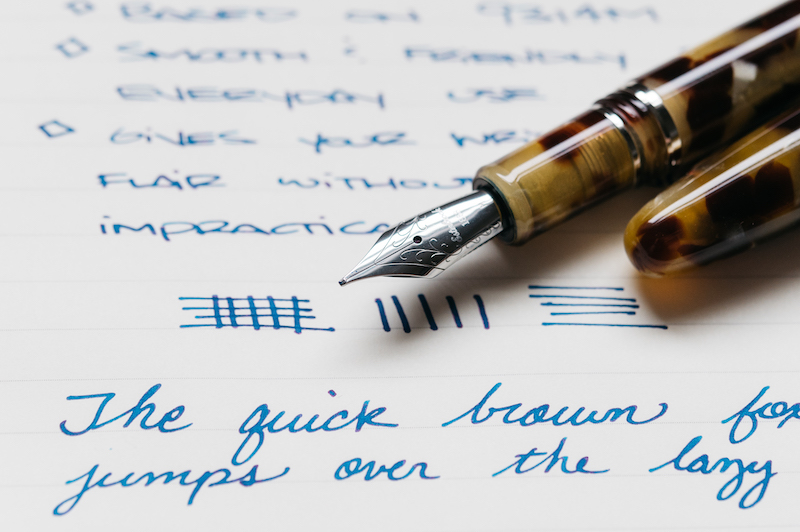 BASED ON
SMOOTH & FRIENDLY
EVERYDAY USE
GIVES YOUR
FLAIR WITHOUT
IMPRACTICA
The quick brown fox
jumps over the lazy